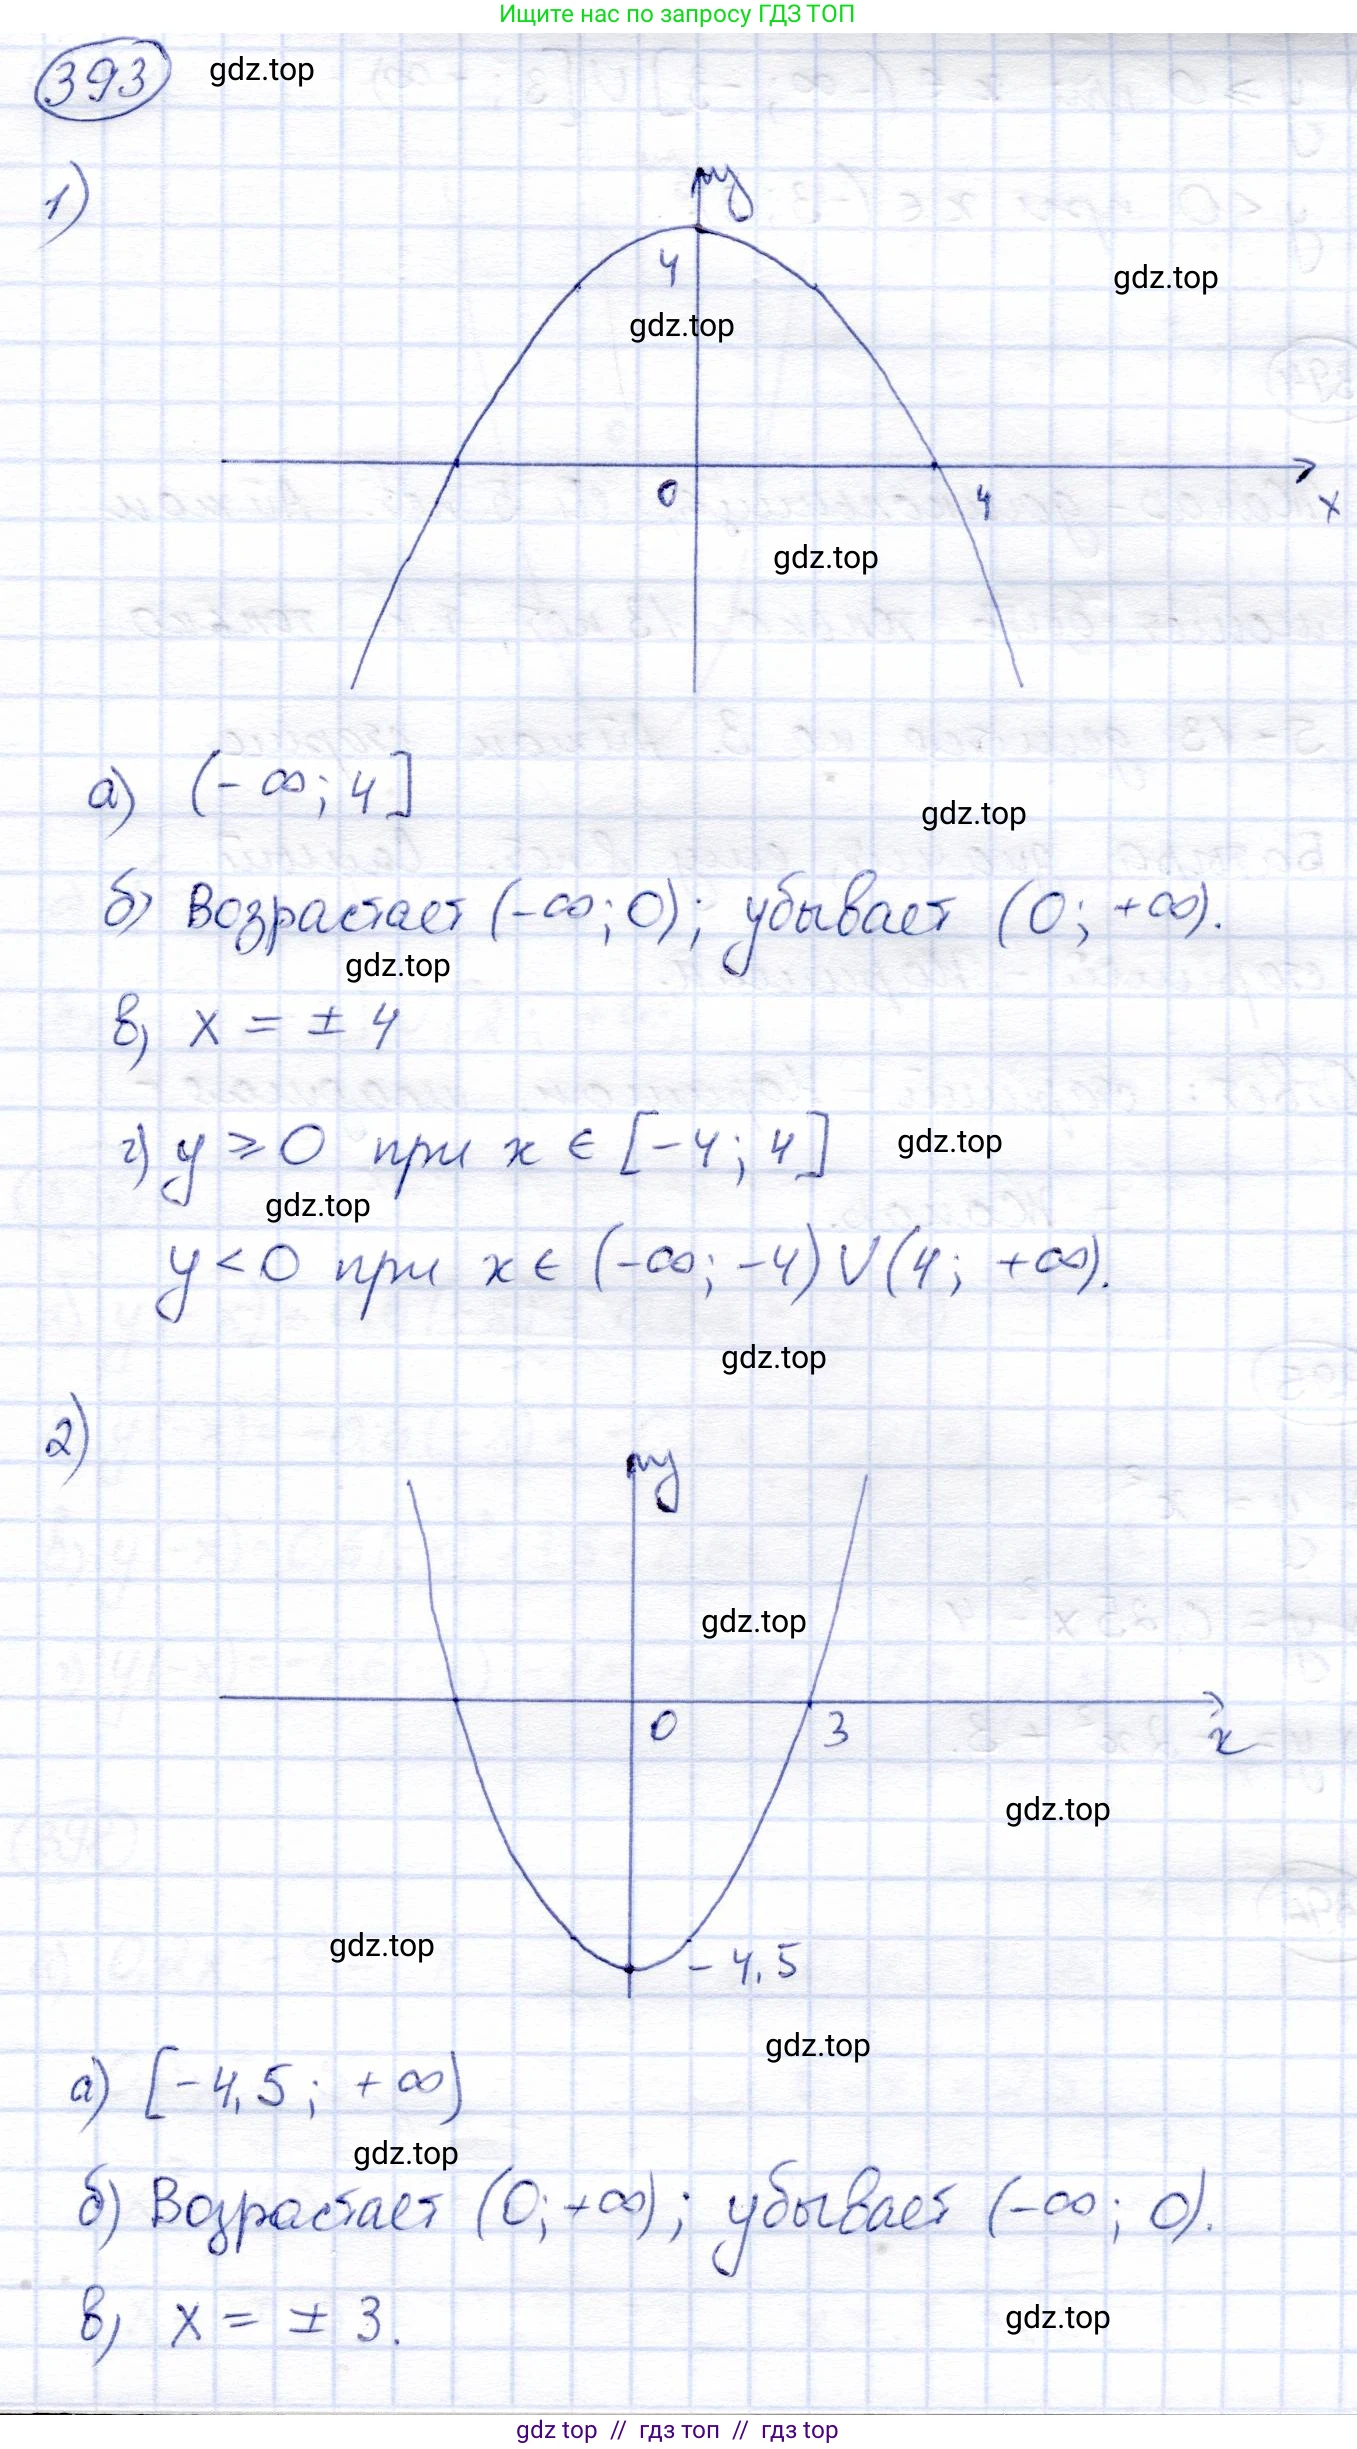 Ищите нас по запросу ГДЗ ТОП
393 gdz.top
1)
y
4
gdz.top
gdz.top
0
4
x
gdz.top
а) (-∞; 4]
gdz.top
б) Возрастает (-∞; 0); убывает (0; +∞).
gdz.top
в) x = ± 4
г) y ≥ 0 при x ∈ [-4; 4]
gdz.top
gdz.top
y < 0 при x ∈ (-∞; -4) ∪ (4; +∞).
gdz.top
2)
y
gdz.top
0
3
x
gdz.top
gdz.top
-4,5
gdz.top
а) [-4,5; +∞)
gdz.top
б) Возрастает (0; +∞); убывает (-∞; 0).
в) x = ± 3.
gdz.top
gdz top // гдз топ // гдз top